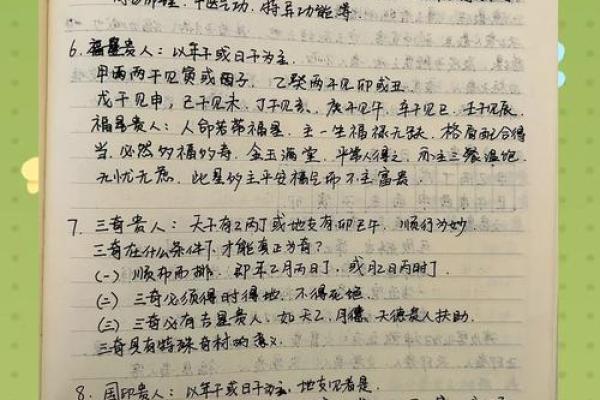 中医气功，特异功能等.
6.福星贵人：以年干或日干为主.
甲丙两干见寅或子，乙癸两干见卯或丑
戊干见申，己干见未，丁干见亥，庚干见午，辛干见巳，壬干见辰.
福星贵人：人命若带福星，主一生福禄无缺，格局配合得
当，必然多福多寿，金玉满堂，平常人得之，亦主三餐温饱
无忧无虑，此星多主平安福气而不主富贵
7、三奇贵人：天干有乙丙丁或地支有卯巳午，顺行为妙.
三奇在什么条件下，才能真正为奇？
(一) 顺布而排，即年乙月丙日丁，或月乙日丙时丁.
(二) 三奇必须得时得地，不得死绝.
(三) 三奇必有吉星贵人，如天乙、月德、天德贵人扶助.
三奇具有特殊奇材的意义.
8、国印贵人：以年干或日干为主，地支见者是.